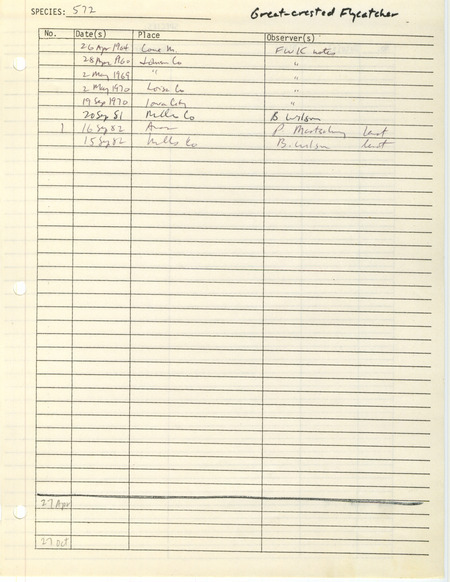 SPECIES: 572 Great-crested Flycatcher
No. Date(s) Place Observer(s)
26 Apr 1964 Cone M. FWK notes
28 Apr 1960 Johnson Co "
2 May 1969 " "
2 May 1970 Louisa Co "
19 Sep 1970 Iowa City "
20 Sep 81 Mills Co B Wilson
1 16 Sep 82 P. last
15 Sep 82 Mills Co B. Wilson last
27 Apr
27 Oct